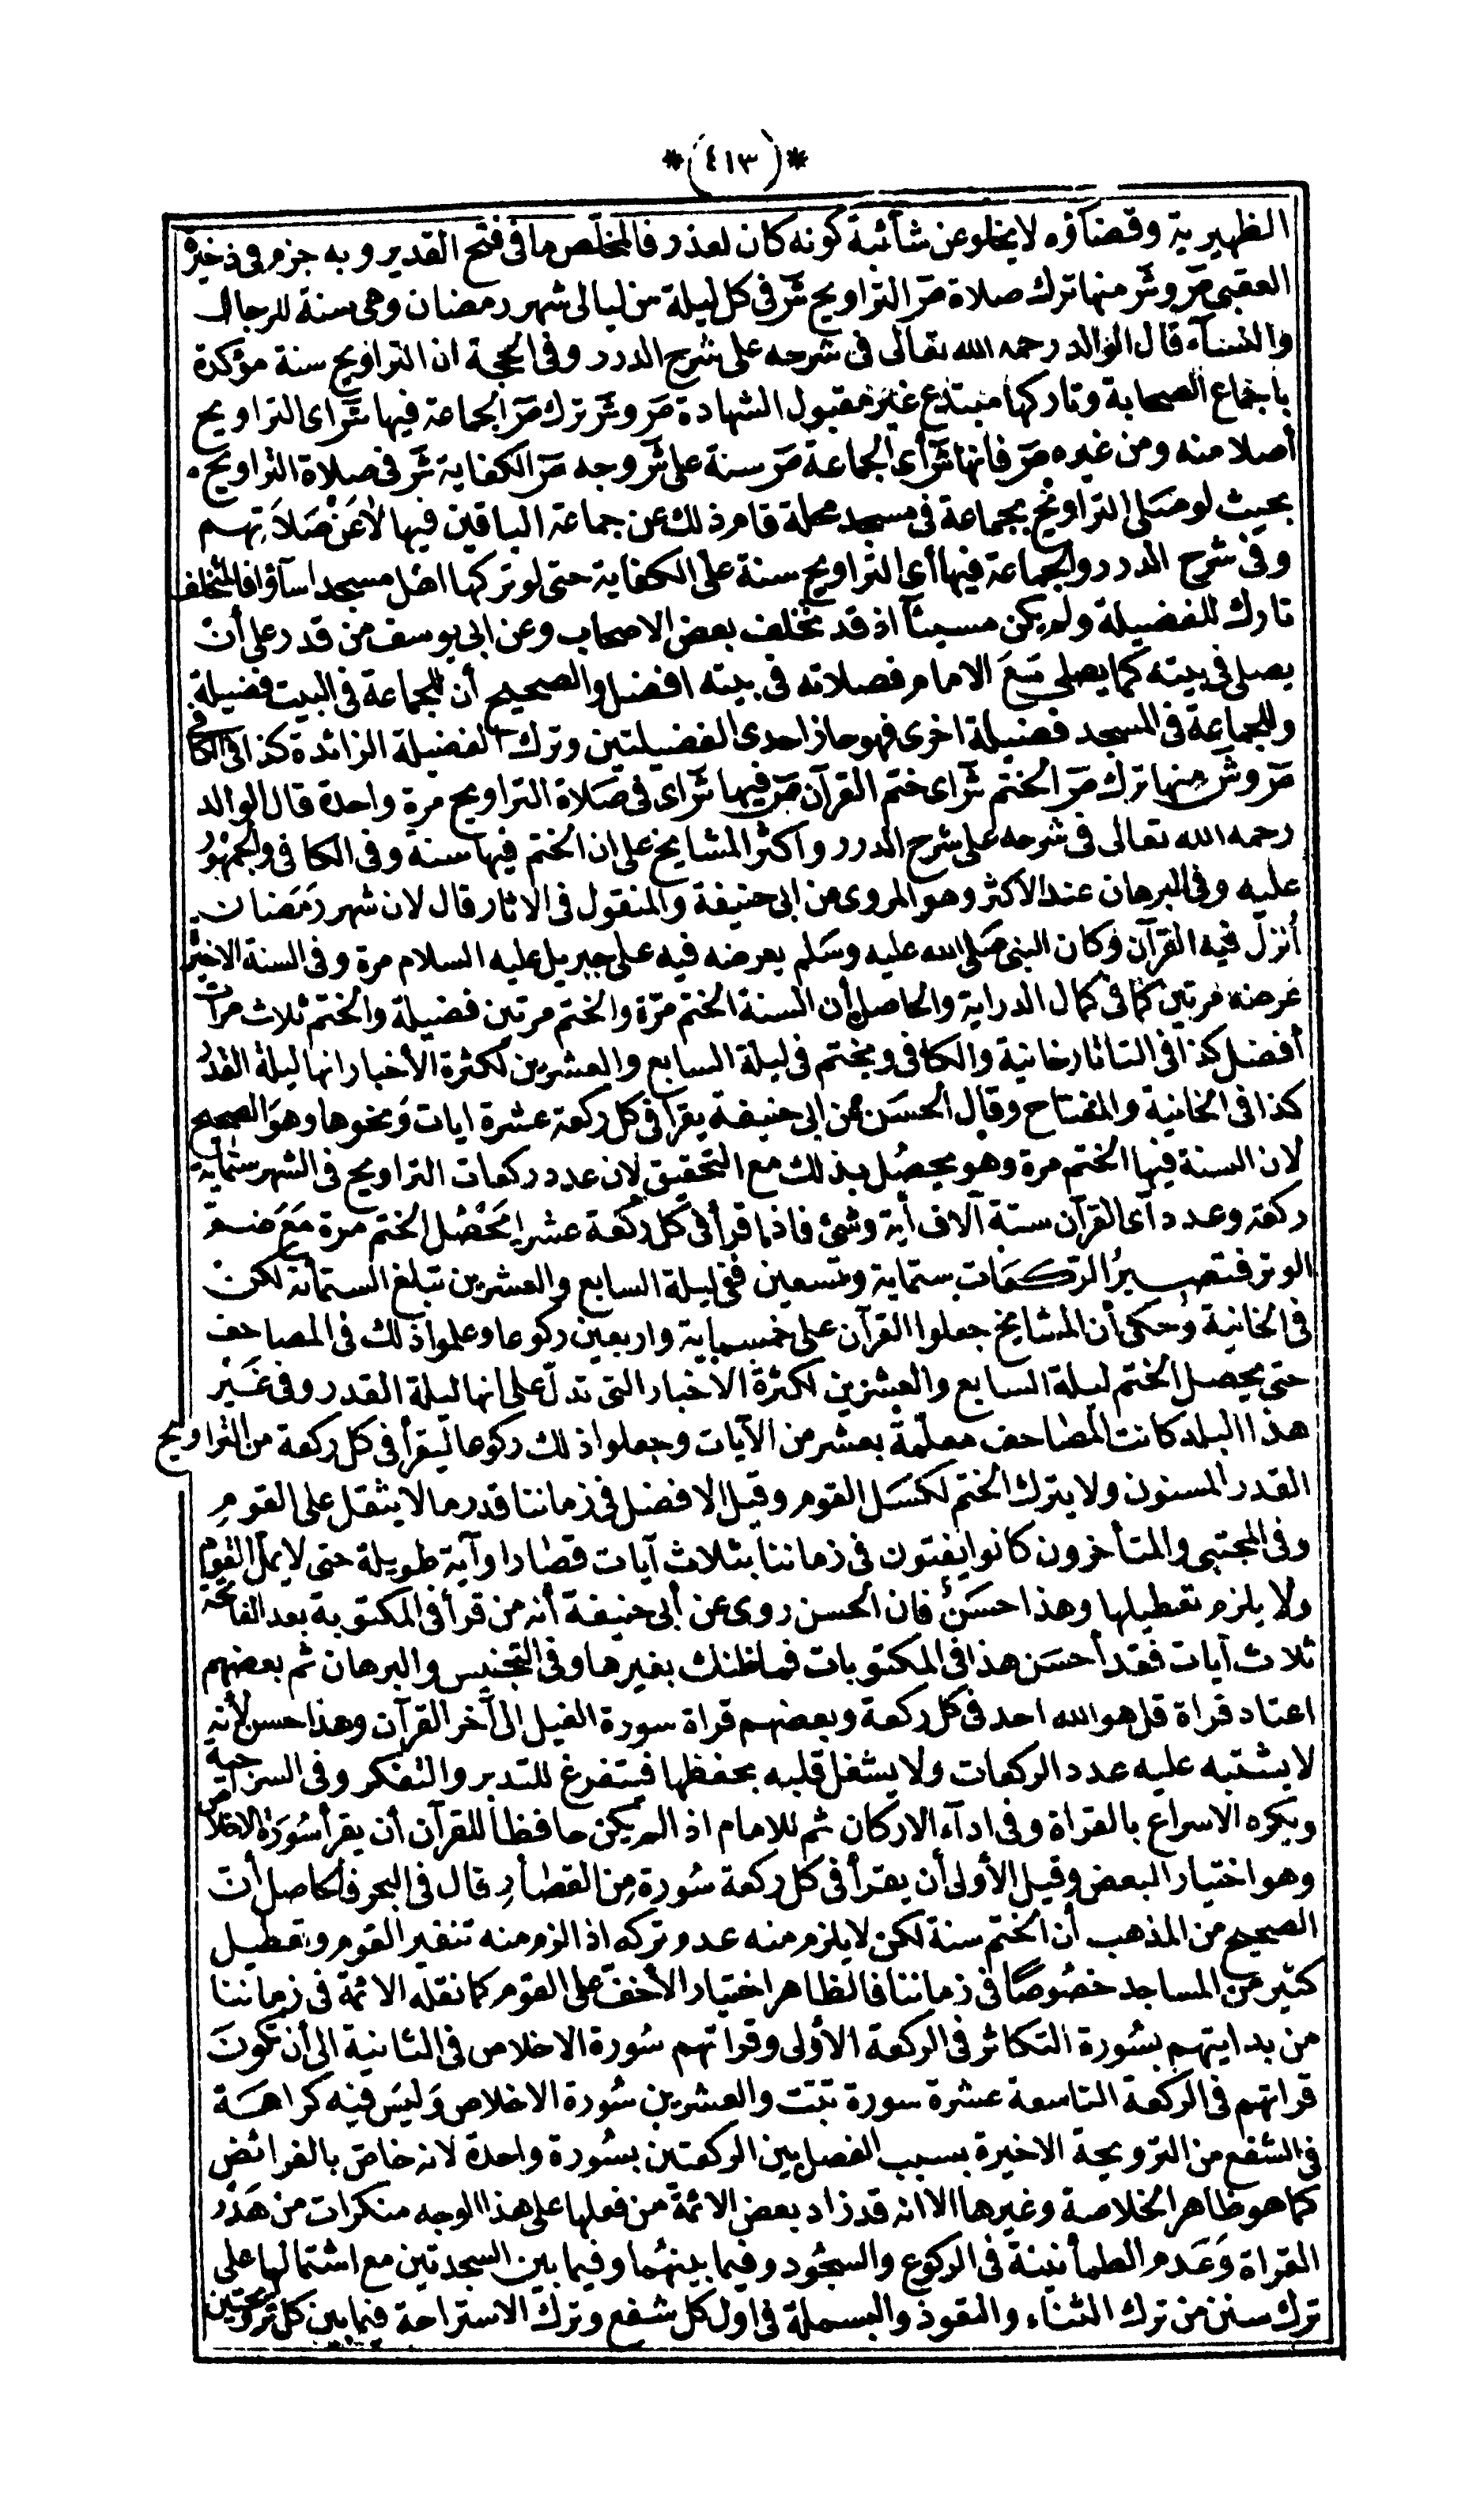 *(٤١٣)*
الظهيرية وقضآؤه لا يخلو عن شائبة كونه كان لعذر فالمخلص ما في فتح القدير وبه جزم في ذخيرة
العقبى صر وشر منها ترك صلاة صر التراويح شر في كل ليلة من ليالى شهر رمضان وهى سنة للرجال
والنسآء قال الوالد رحمه الله تعالى فى شرحه على شرح الدرر وفى الحجة ان التراويح سنة مؤكدة
باجماع الصحابة وتاركها مبتدع غير مقبول الشهادة صر وشر ترك صر الجماعة فيها شر اى التراويح
أصلا منه ومن غيره صر فانها شر أى الجماعة صر سنة على شر وجه صر الكفاية شر فى صلاة التراويح
بحيث لو صلى التراويح بجماعة فى مسجد محلة قام ذلك عن جماعة الباقين فيها لا عن صلاتهم
وفى شرح الدرر والجماعة فيها أى التراويح سنة على الكفاية حتى لو تركها اهل مسجد اسآؤا فالمتخلف
تارك للفضيلة ولم يكن مسيئا اذ قد تخلف بعض الاصحاب وعن ابى يوسف من قدر على أن
يصلى فى بيته كما يصلى مع الامام فصلاته فى بيته افضل والصحيح أن للجماعة فى البيت فضيلة
وللجماعة فى المسجد فضيلة اخرى فهو حاز احدى الفضيلتين وترك الفضيلة الزائدة كذا فى الكافى
صر وشر منها ترك صر الختم شر اى ختم القرآن صر فيها شر اى فى صلاة التراويح مرة واحدة قال الوالد
رحمه الله تعالى فى شرحه على شرح الدرر واكثر المشايخ على ان الختم فيها سنة وفى الكافى والجمهور
عليه وفى البرهان عند الاكثر وهو المروى عن ابى حنيفة والمنقول فى الاثار قال لان شهر رمضان
أنزل فيه القرآن وكان النبى صلى الله عليه وسلم يعرضه فيه على جبريل عليه السلام مرة وفى السنة الاخيرة
عرضه مرتين كما فى كمال الدراية والحاصل أن السنة الختم مرة والختم مرتين فضيلة والختم ثلاث مرات
أفضل كذا فى التاتارخانية والكافى ويختم فى ليلة السابع والعشرين لكثرة الأخبار انها ليلة القدر
كذا فى الخانية والمفتاح وقال الحسن عن ابى حنيفة يقرأ فى كل ركعة عشرة ايات ونحوها وهو الصحيح
لان السنة فيها الختم مرة وهو يحصل بذلك مع التحقيق لان عدد ركعات التراويح فى الشهر ستماية
ركعة وعدد آى القرآن ستة آلاف أية وشئ فاذا قرأ فى كل ركعة عشرا يحصل الختم مرة مع ضم
الوتر فتصير الركعات ستماية وتسعين ففى ليلة السابع والعشرين تبلغ الستمأئة لكن
فى الخانية وحكى أن المشايخ جعلوا القرآن على خمسماية واربعين ركوعا وعلموا ذلك فى المصاحف
حتى يحصل الختم ليلة السابع والعشرين لكثرة الاخبار التى تدل على انها ليلة القدر وفى غير
هذا البلد كانت المصاحف معلمة بعشر من الآيات وجعلوا ذلك ركوعا ليقرأ فى كل ركعة من التراويح
القدر المسنون ولا يترك الختم لكسل القوم وقيل الافضل فى زماننا قدر ما لا يثقل على القوم
وفى المجتبى والمتأخرون كانوا يفتون فى زماننا بثلاث آيات قصار او آية طويلة حتى لا يمل القوم
ولا يلزم تعطيلها وهذا حسن فان الحسن روى عن أبى حنيفة أنه من قرأ فى المكتوبة بعد الفاتحة
ثلاث آيات فقد أحسن هذا فى المكتوبات فما ظنك بغيرها وفى التجنيس والبرهان ثم بعضهم
اعتاد قراة قل هو الله احد فى كل ركعة وبعضهم قراة سورة الفيل الى آخر القرآن وهذا حسن لأنه
لا يشتبه عليه عدد الركعات ولا يشغل قلبه بحفظها فيتفرغ للتدبر والتفكر وفى السراجية
ويكره الاسراع بالقراة وفى ادآء الاركان ثم للامام اذا لم يكن حافظا للقرآن أن يقرأ سورة الاخلاص
وهو اختيار البعض وقيل الأولى أن يقرأ فى كل ركعة سورة من القصار قال فى البحر فالحاصل أن
الصحيح من المذهب أن الختم سنة لكن لا يلزم منه عدم تركه اذا لزم منه تنفير القوم وتعطيل
كثير من المساجد خصوصا فى زماننا فالظاهر اختيار الأخف على القوم كما نقله الائمة فى زماننا
من بدايتهم بسورة التكاثر فى الركعة الأولى وقراتهم سورة الاخلاص فى الثانية الى أن تكون
قراتهم فى الركعة التاسعة عشرة سورة تبت والعشرين سورة الاخلاص وليس فيه كراهة
فى الشفع من الترويحة الاخيرة بسبب الفصل بين الركعتين بسورة واحدة لانه خاص بالفرائض
كما هو ظاهر الخلاصة وغيرها الا انه قد زاد بعض الائمة من فعلها على هذا الوجه منكرات من هذر
القراة وعدم الطمأنينة فى الركوع والسجود وفيما بينهما وفيما بين السجدتين مع اشتمالها على
ترك سنن من ترك الثناء والتعوذ والبسملة فى اول كل شفع وترك الاستراحة فيما بين كل ترويحتين